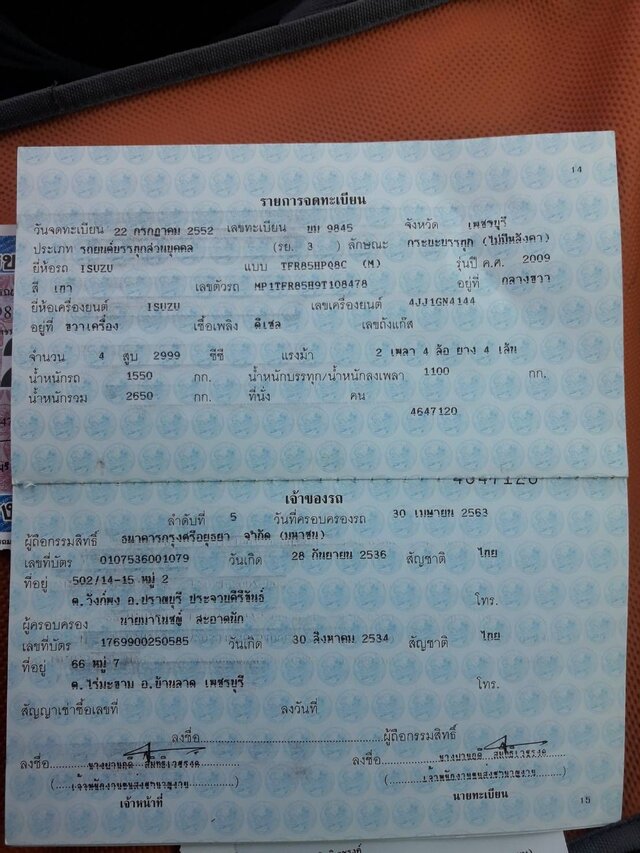 14
รายการจดทะเบียน
วันจดทะเบียน 22 กรกฎาคม 2552 เลขทะเบียน บบ 9845 จังหวัด เพชรบุรี
ประเภท รถยนต์บรรทุกส่วนบุคคล (รย. 3 ) ลักษณะ กระบะบรรทุก (ไม่มีหลังคา)
ยี่ห้อรถ ISUZU แบบ TFR85HPQ8C (M) รุ่นปี ค.ศ. 2009
สี เทา เลขตัวรถ MP1TFR85H9T108478 อยู่ที่ กลางขวา
ยี่ห้อเครื่องยนต์ ISUZU เลขเครื่องยนต์ 4JJ1GN4144
อยู่ที่ ขวาเครื่อง เชื้อเพลิง ดีเซล เลขถังแก๊ส
จำนวน 4 สูบ 2999 ซีซี แรงม้า 2 เพลา 4 ล้อ ยาง 4 เส้น
น้ำหนักรถ 1550 กก. น้ำหนักบรรทุก/น้ำหนักลงเพลา 1100 กก.
น้ำหนักรวม 2650 กก. ที่นั่ง คน
4647120
เจ้าของรถ
ลำดับที่ 5 วันที่ครอบครองรถ 30 เมษายน 2563
ผู้ถือกรรมสิทธิ์ ธนาคารกรุงศรีอยุธยา จำกัด (มหาชน)
เลขที่บัตร 0107536001079 วันเกิด 28 กันยายน 2536 สัญชาติ ไทย
ที่อยู่ 502/14-15 หมู่ 2
ต.วังก์พง อ.ปราณบุรี ประจวบคีรีขันธ์ โทร.
ผู้ครอบครอง นายมาโนชญ์ สะอาดนัก
เลขที่บัตร 1769900250585 วันเกิด 30 สิงหาคม 2534 สัญชาติ ไทย
ที่อยู่ 66 หมู่ 7
ต.ไร่มะขาม อ.บ้านลาด เพชรบุรี โทร.
สัญญาเช่าซื้อเลขที่ ลงวันที่
ลงชื่อ ผู้ถือกรรมสิทธิ์
ลงชื่อ ลงชื่อ
เจ้าหน้าที่ นายทะเบียน
15